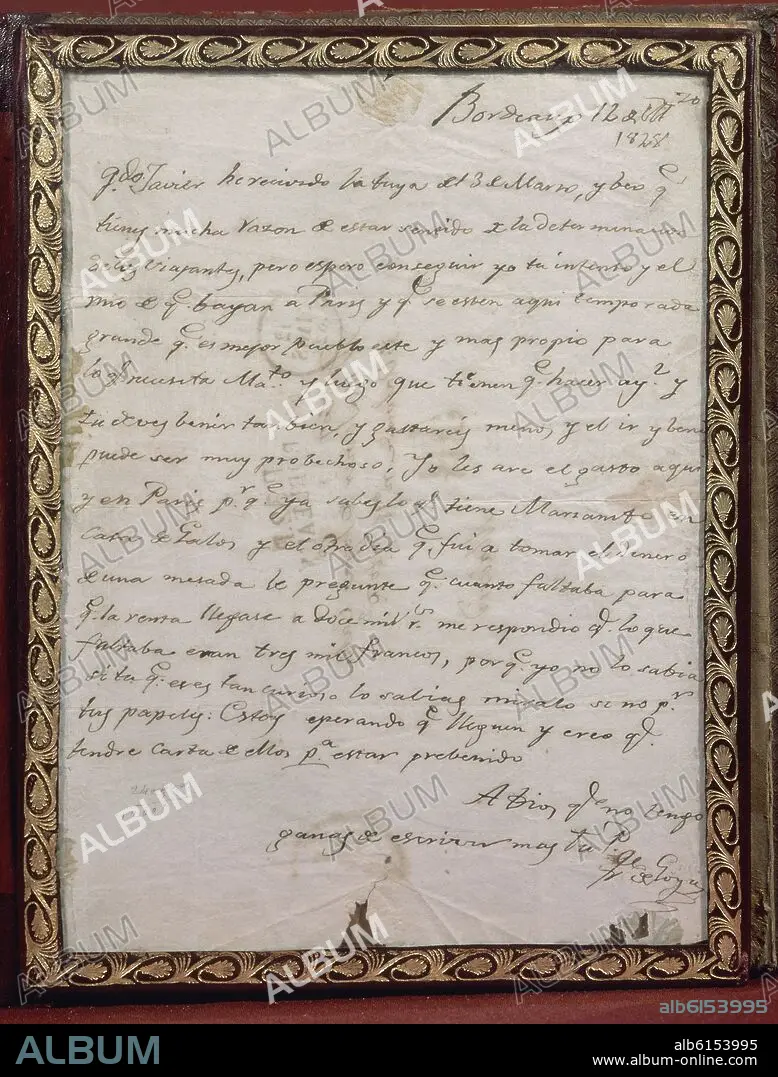 Bordeaux 12 de
1828
q.do Javier he recivido la tuya del 3 de Marzo, y beo q.e
tienes mucha razon de estar sentido x la determinacion
de los Viajantes, pero espero conseguir yo tu intento y el
mio de q.e bayan a Paris y q.e se esten aqui temporada
grande q.e es mejor pueblo este y mas propio para
lo q.e necesita Ma.no y luego que tienen q.e hacer ay.? y
tu deves benir tambien, y gastareis menos y el ir y benir
puede ser muy probechoso. Yo les are el gasto aqui
y en Paris p.r q.e ya sabes lo al tiene Mariano en
casa de Galos y el otro dia q.e fui a tomar el dinero
de una mesada le pregunte q.e cuanto faltaba para
q.e la renta llegase a doce mil r.s me respondio q.e lo que
faltaba eran tres mil francos, por q.e yo no lo sabia
si tu q.e eres tan curioso lo sabias miralo si no p.r
tus papeles: Estoy esperando q.e lleguen y creo q.e
tendre carta de ellos p.a estar prebenido
A Dios q.e no tengo
ganas de escrivir mas tu P.
Goya
ALBUM
alb6153995
ALBUM
alb6153995
www.album-online.com